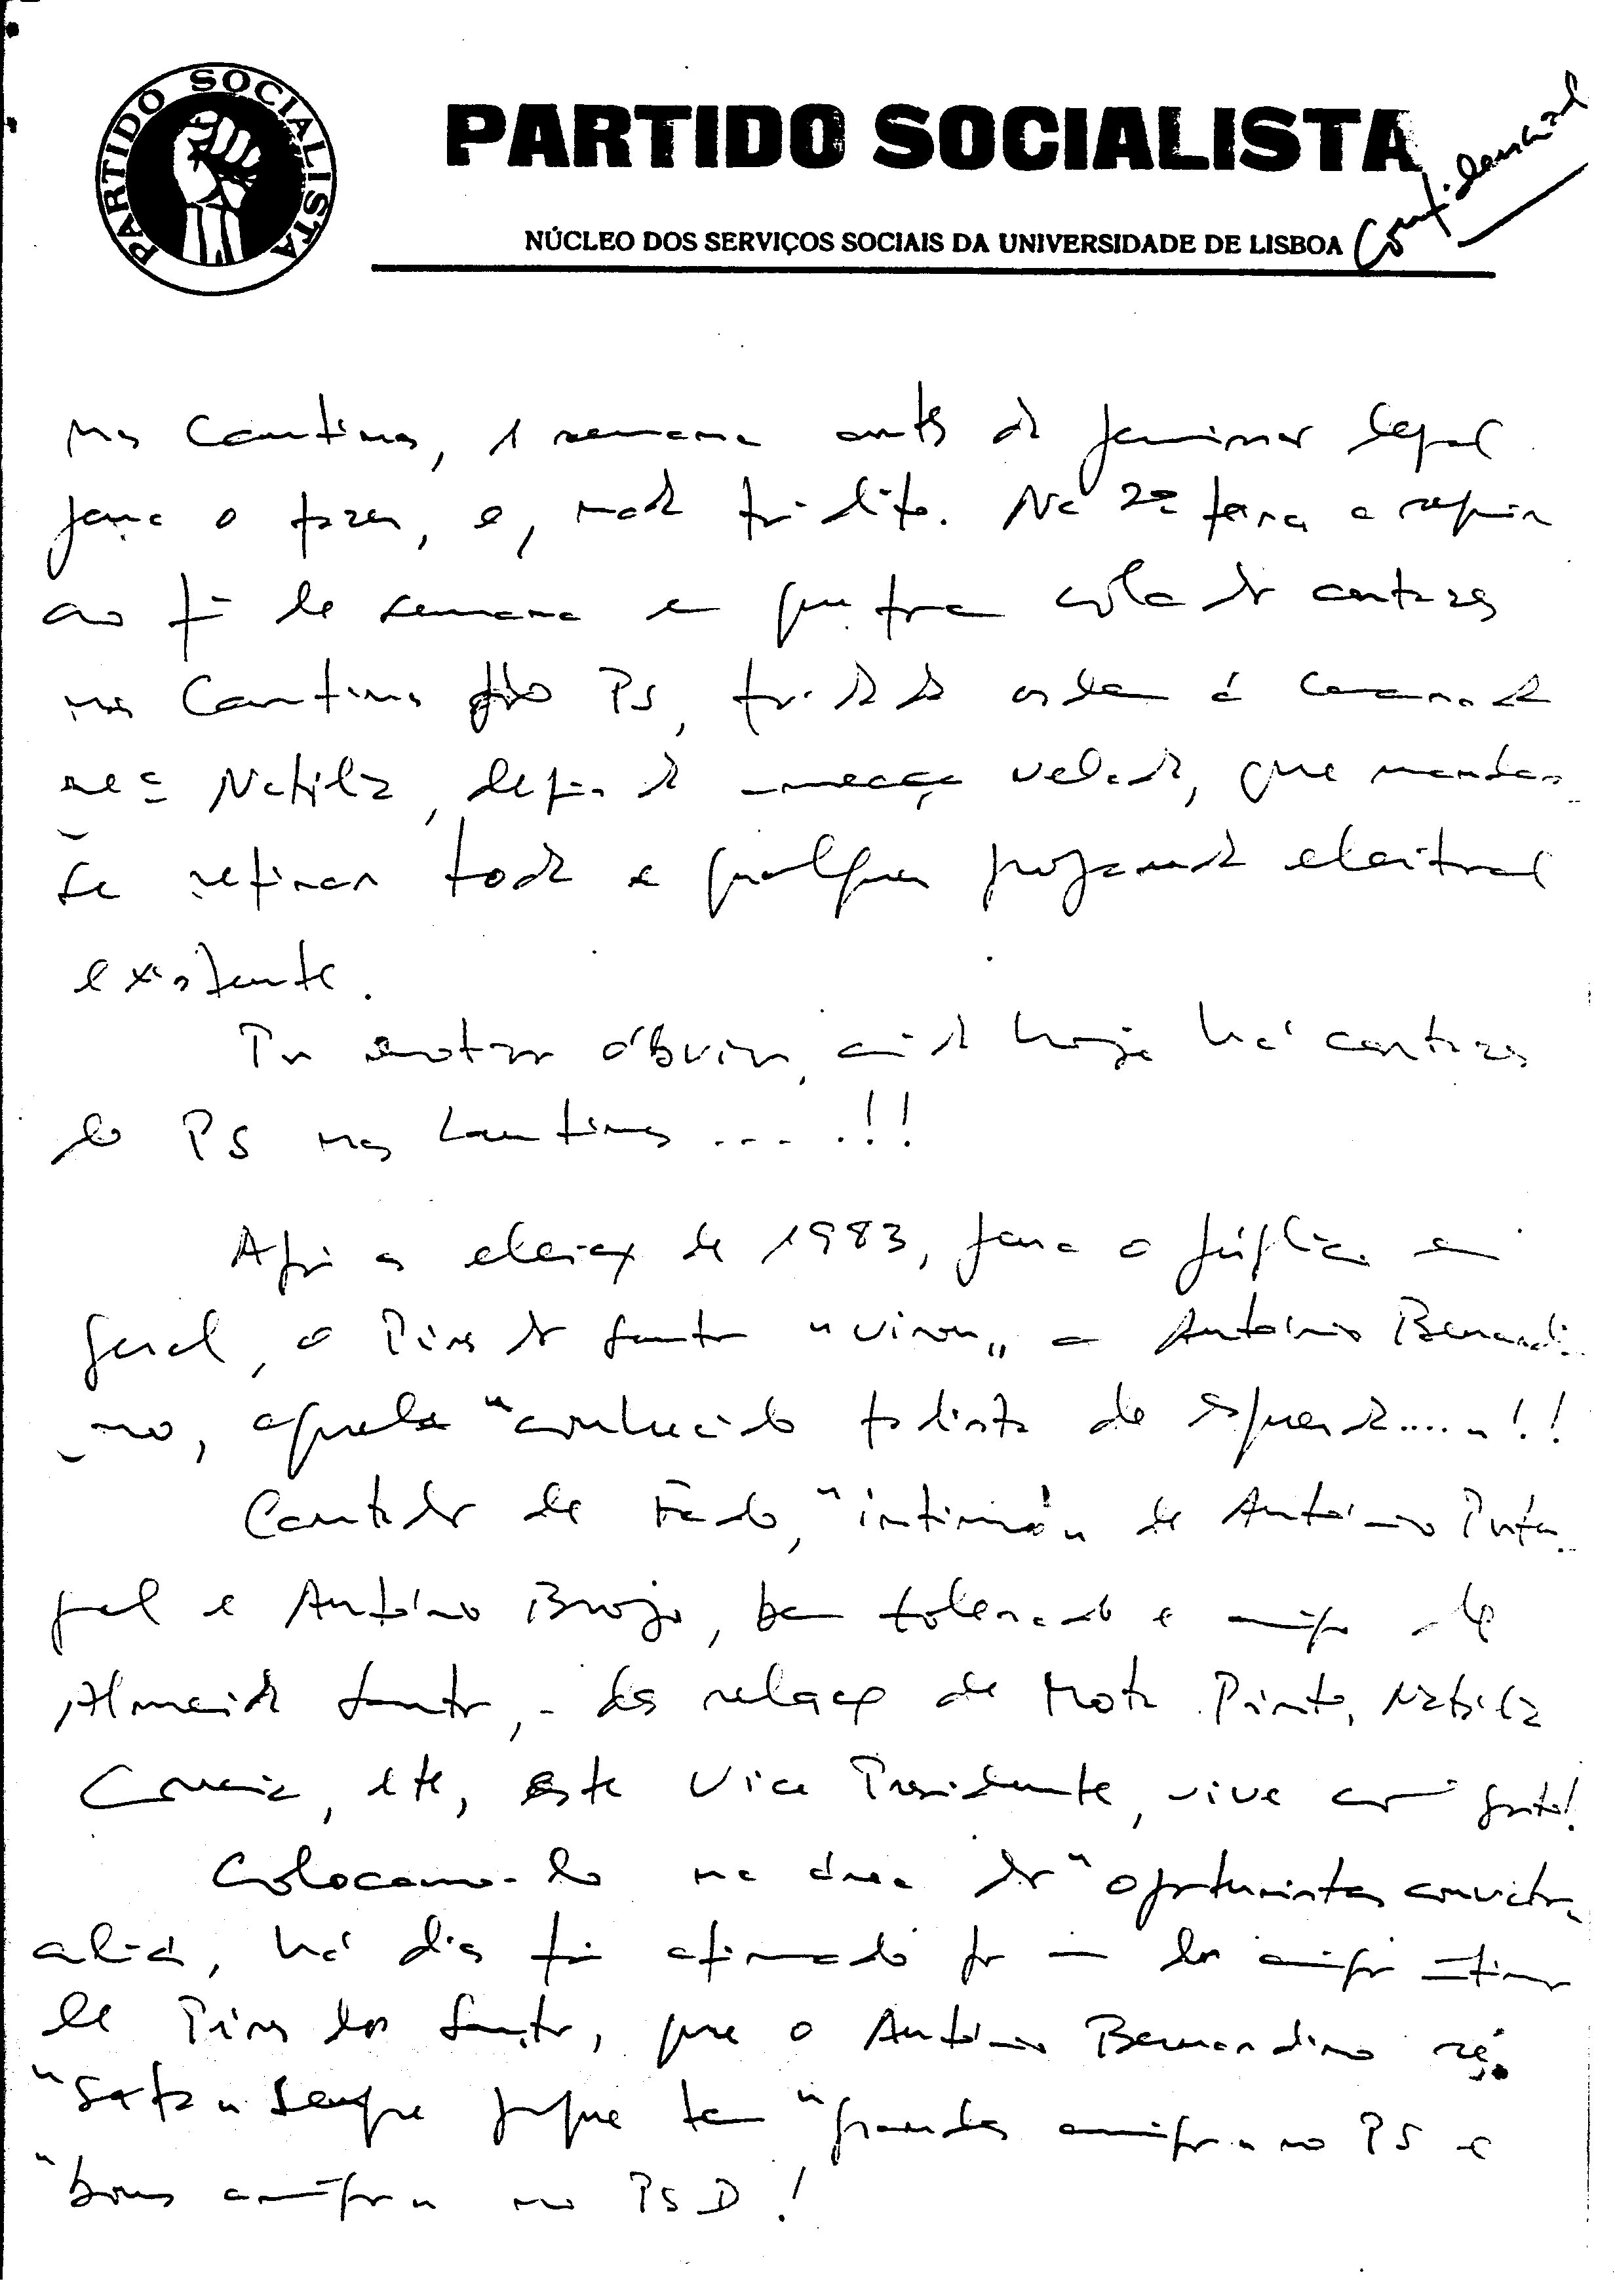 PARTIDO SOCIALISTA
PARTIDO SOCIALISTA
Confidencial
NÚCLEO DOS SERVIÇOS SOCIAIS DA UNIVERSIDADE DE LISBOA
nas Cantinas, 1 semana antes de legal
para o fazer, e, nada foi dito. Na 2ª feira a seguir
ao fim de semana em que fora cola de cartazes
nas Cantinas pelo PS, foi dada ordem à camarada
Natália, depois de ameaça velada, que mandas-
se retirar toda e qualquer propaganda eleitoral
existente.
Por motivos óbvios, ainda hoje há cartazes
do PS nas Cantinas ... .!!
Após as eleições de 1983, para o público em
geral, o Pires dos Santos "virou" a António Bernardi-
no, aquele "conhecido fadista de esquerda....."!!
Cantador de Fado, "intimo" de António Portu-
gal e António Brojo, bem tolerado e amigo de
Almeida Santos, - das relações de Mota Pinto, Natália
Correia, etc, este Vice Presidente, vive com gosto!
Colocamo-lo na área dos "oportunistas convictos,
aliás, há dias foi afirmado por um dos amigos íntimos
de Pires dos Santos, que o António Bernardino se
"safa" sempre porque tem "grandes amigos" no PS e
"bons amigos" no PSD!